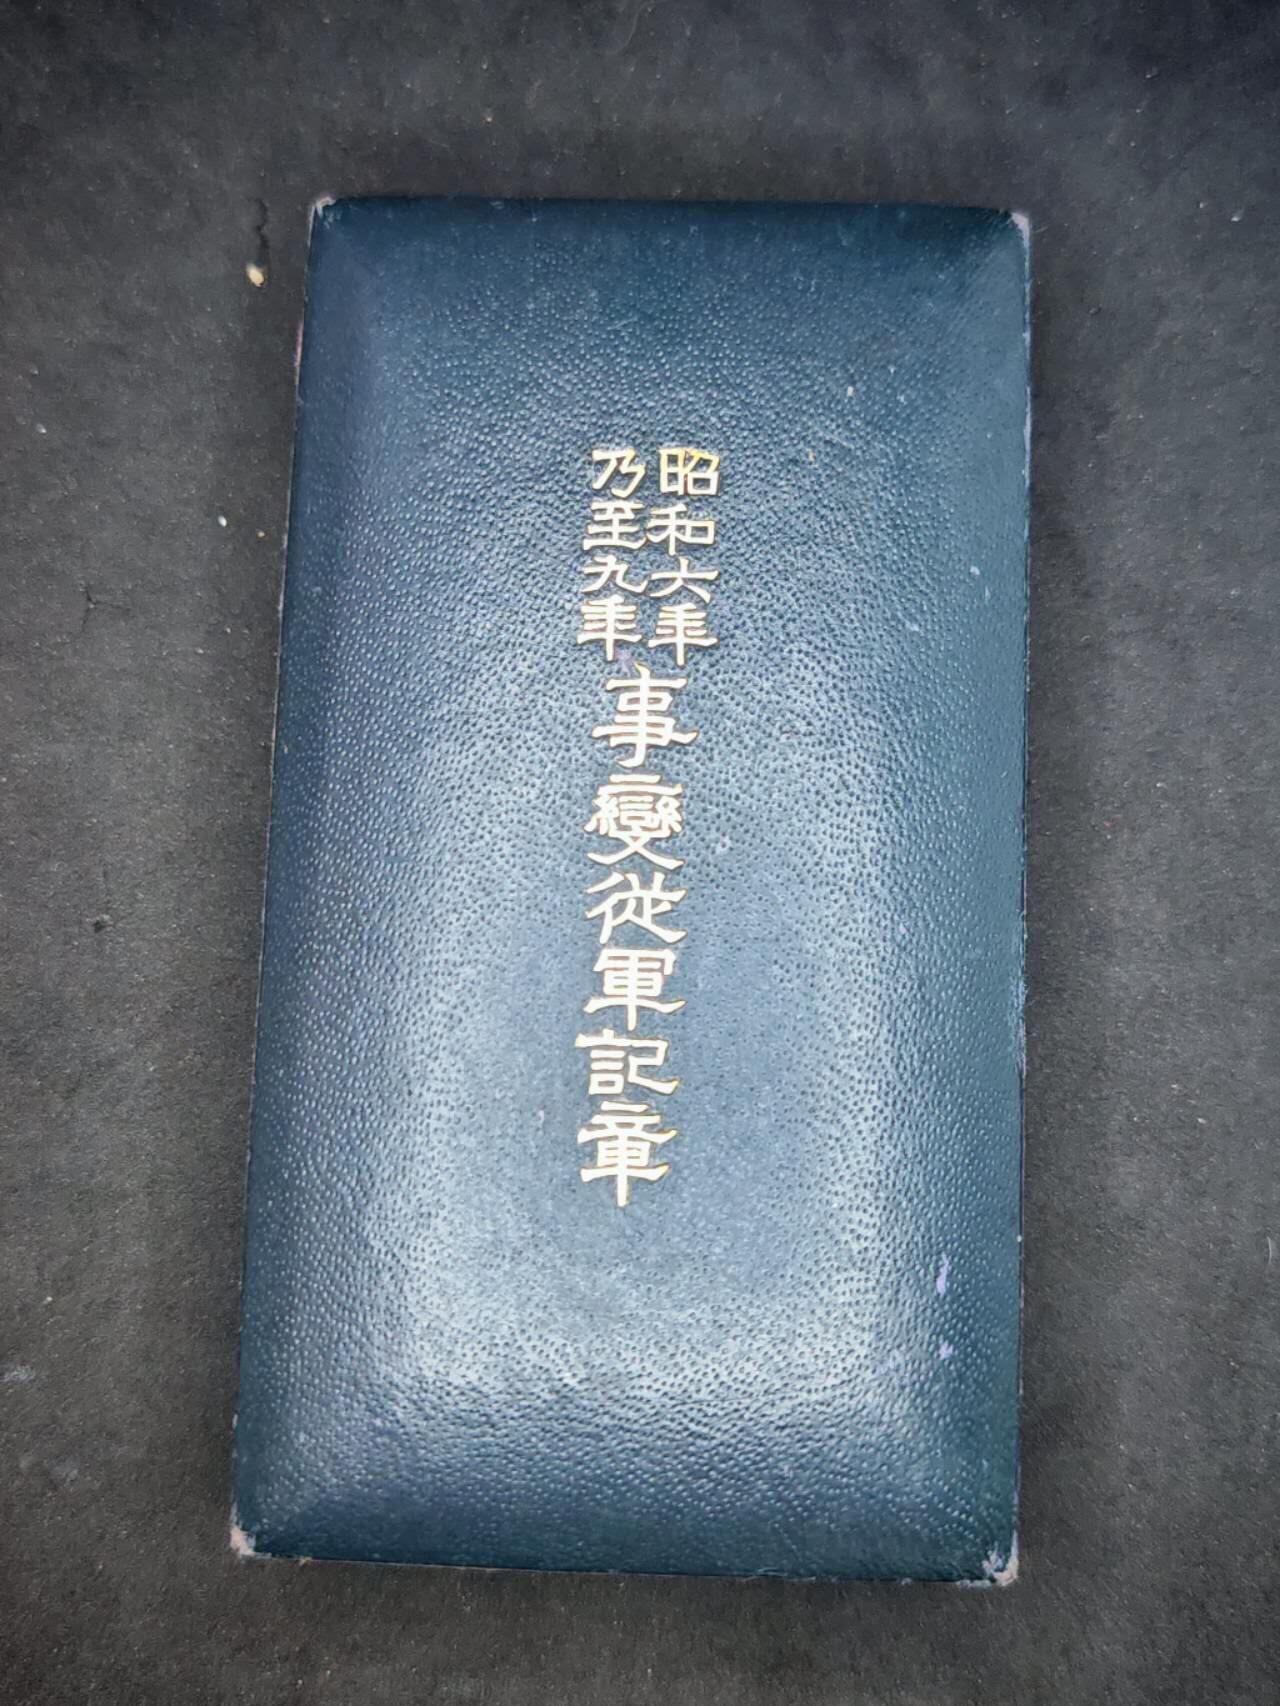 昭和六年
乃至九年
事變從軍記章